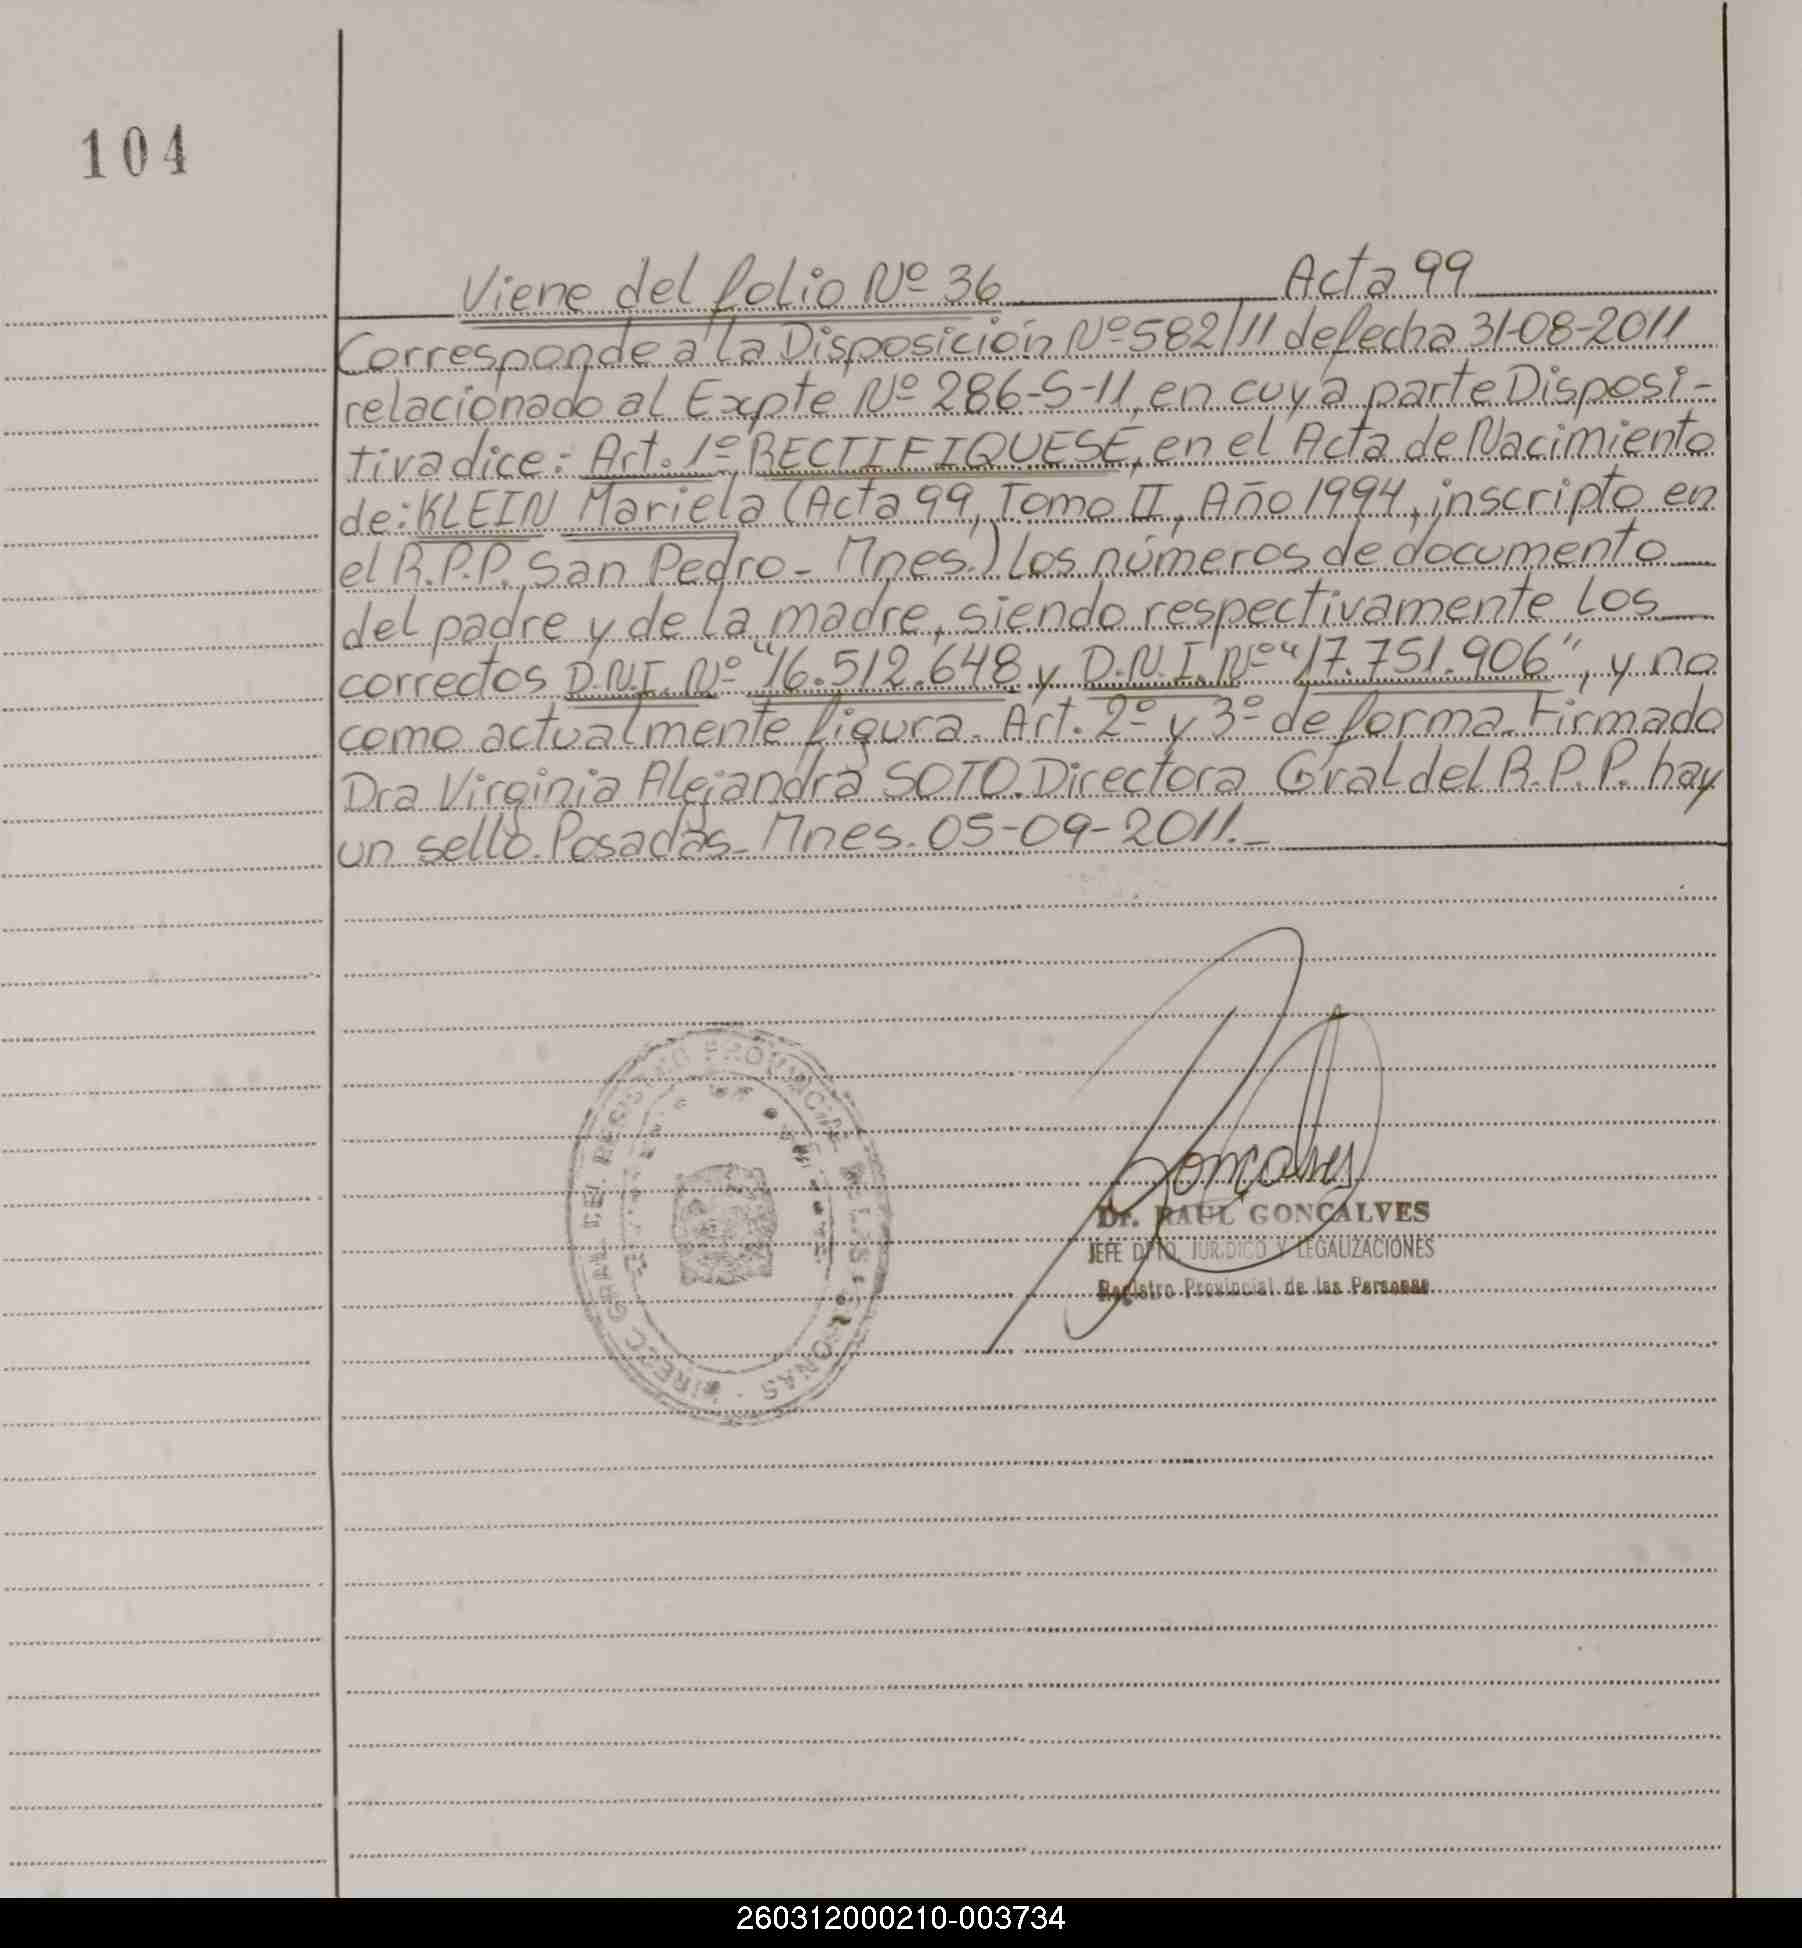 104
Viene del folio Nº 36 Acta 99
Corresponde a la Disposición Nº 582/11 de fecha 31-08-2011
relacionado al Expte Nº 286-S-11, en cuya parte Disposi-
tiva dice: Art. 1º RECTIFIQUESE, en el Acta de Nacimiento
de: KLEIN Mariela (Acta 99, Tomo II, Año 1994, inscripto en
el R.P.P. San Pedro - Mnes.) los números de documento
del padre y de la madre, siendo respectivamente los
correctos D.N.I. Nº "16.512.648 y D.N.I. Nº "17.751.906", y no
como actualmente figura. Art. 2º y 3º de forma. Firmado
Dra Virginia Alejandra SOTO. Directora Gral del R.P.P. hay
un sello. Posadas - Mnes. 05-09-2011.-
DIREC. GRAL. DEL REGISTRO PROVINCIAL DE LAS PERSONAS
Gonçalves
Dr. RAUL GONÇALVES
JEFE DPTO. JURIDICO Y LEGALIZACIONES
Registro Provincial de las Personas
260312000210-003734